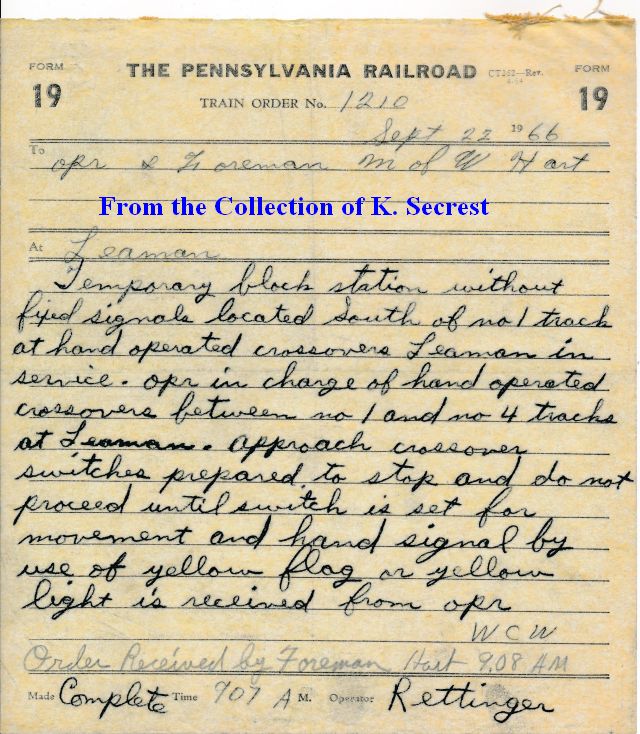 FORM 19 THE PENNSYLVANIA RAILROAD CT362—Rev. FORM 19
TRAIN ORDER No. 1210
Sept 22 1966
To opr & Foreman M of W Hart
From the Collection of K. Secrest
At Leaman
Temporary block station without
fixed signals located South of no 1 track
at hand operated crossovers Leaman in
service. opr in charge of hand operated
crossovers between no 1 and no 4 tracks
at Leaman. approach crossover
switches prepared to stop and do not
proceed until switch is set for
movement and hand signal by
use of yellow flag or yellow
light is received from opr
WCW
Order Received by Foreman Hart 9.08 AM
Made Complete Time 907 A M. Operator Rettinger